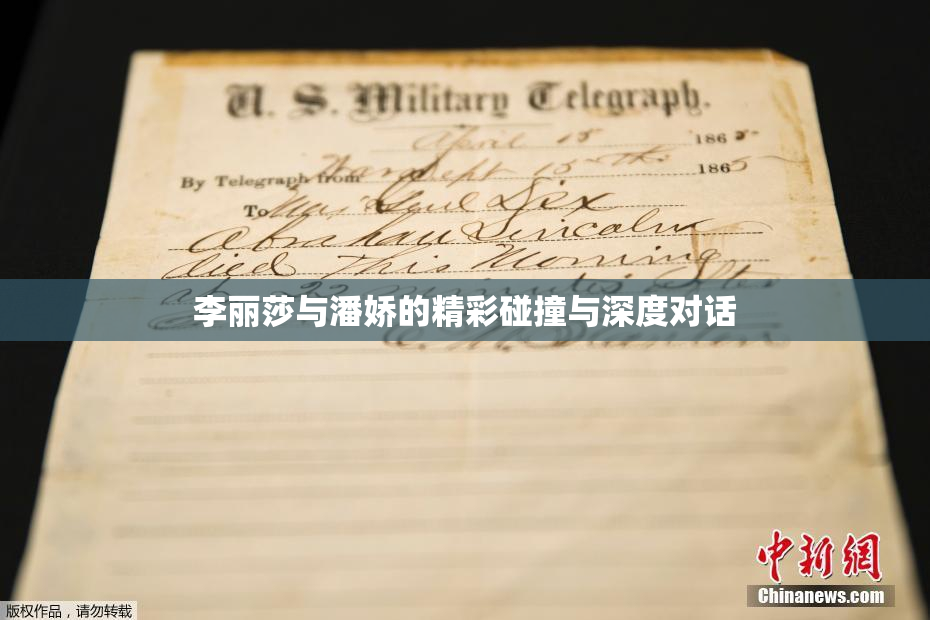 U. S. Military Telegraph.
April 15 1865
By Telegraph from War Dept 15th 1865
To Maj Genl Dix
Abraham Lincoln
died This Morning
22 minutes after
李丽莎与潘娇的精彩碰撞与深度对话
中新網
Chinanews.com
版权作品，请勿转载